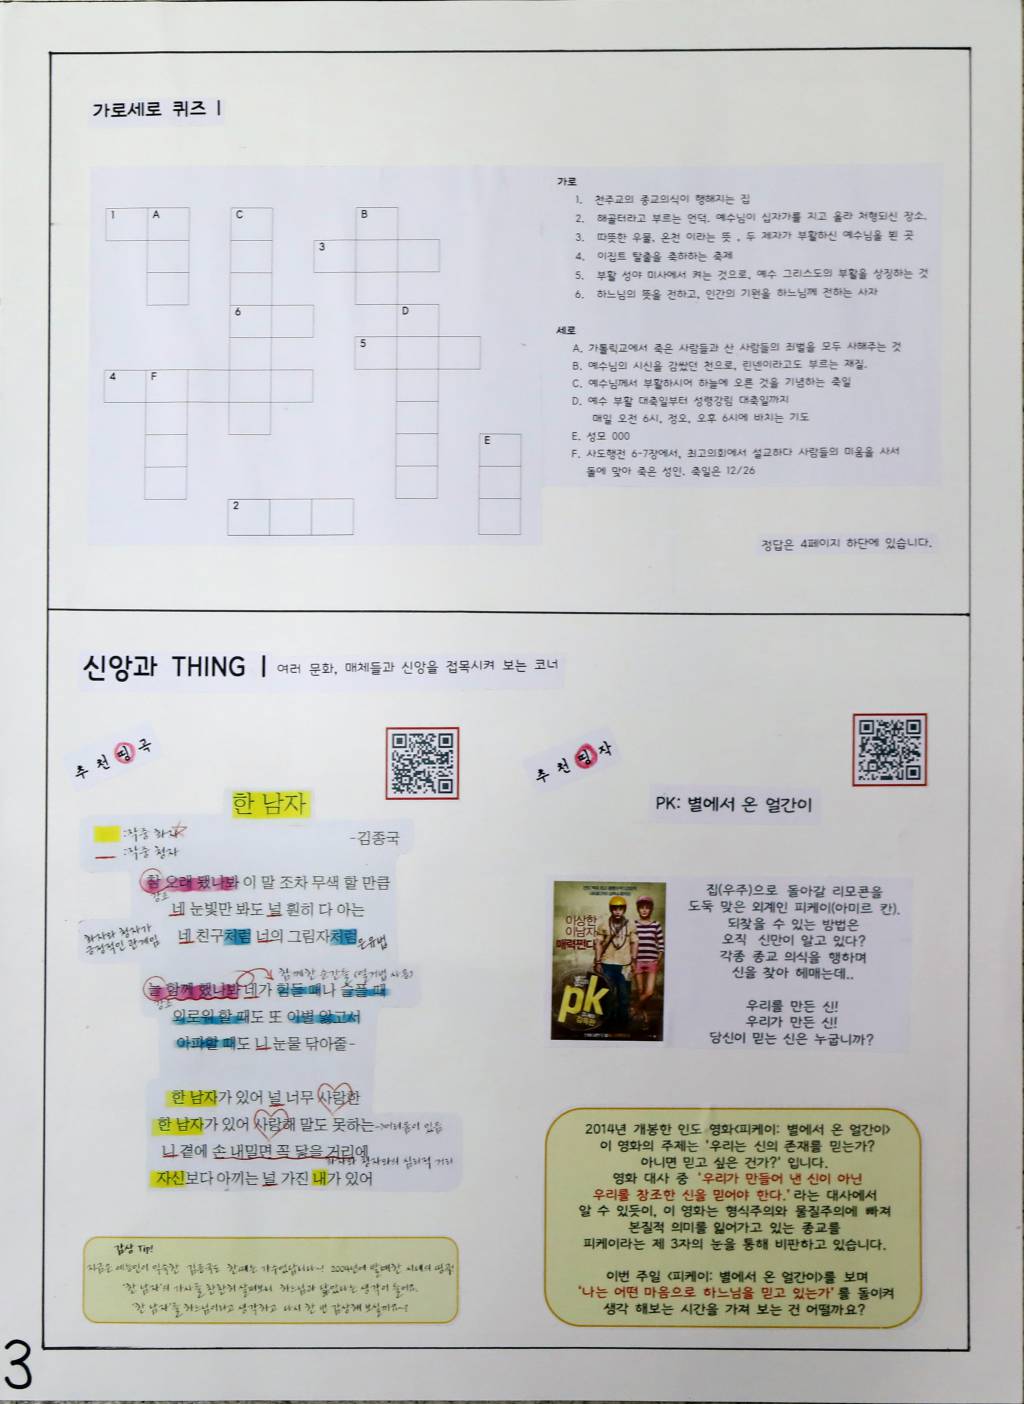 가로세로 퀴즈 |
1 A
C
B
3
6
D
5
4 F
E
2
가로
1. 천주교의 종교의식이 행해지는 집
2. 해골터라고 부르는 언덕. 예수님이 십자가를 지고 올라 처형되신 장소.
3. 따뜻한 우물, 온천 이라는 뜻 , 두 제자가 부활하신 예수님을 뵌 곳
4. 이집트 탈출을 축하하는 축제
5. 부활 성야 미사에서 켜는 것으로, 예수 그리스도의 부활을 상징하는 것
6. 하느님의 뜻을 전하고, 인간의 기원을 하느님께 전하는 사자
세로
A. 가톨릭교에서 죽은 사람들과 산 사람들의 죄벌을 모두 사해주는 것
B. 예수님의 시신을 감쌌던 천으로, 린넨이라고도 부르는 재질.
C. 예수님께서 부활하시어 하늘에 오른 것을 기념하는 축일
D. 예수 부활 대축일부터 성령강림 대축일까지
매일 오전 6시, 정오, 오후 6시에 바치는 기도
E. 성모 000
F. 사도행전 6-7장에서, 최고의회에서 설교하다 사람들의 미움을 사서
돌에 맞아 죽은 성인. 축일은 12/26
정답은 4페이지 하단에 있습니다.
신앙과 THING | 여러 문화, 매체들과 신앙을 접목시켜 보는 코너
추천띵곡
한 남자
-김종국
:작중 화자
:작중 청자
참 오래 됐나봐 이 말 조차 무색 할 만큼
강조
네 눈빛만 봐도 널 훤히 다 아는
네 친구처럼 너의 그림자처럼
은유법
화자와 청자가
긍정적인 관계임
함께한 순간들 (열거법 사용)
늘 함께 했나봐 네가 힘들 때나 슬플 때
강조
외로워 할 때도 또 이별 앓고서
아파할 때도 니 눈물 닦아줄-
한 남자가 있어 널 너무 사랑한
한 남자가 있어 사랑해 말도 못하는
->어려움이 있음
니 곁에 손 내밀면 꼭 닿을 거리에
화자와 청자와의 심리적 거리
자신보다 아끼는 널 가진 내가 있어
감상 Tip!
지금은 예능인이 익숙한 김종국도 한때는 가수였답니다~! 2004년에 발매한 시대의 명곡
'한 남자'의 가사를 찬찬히 살펴보니 하느님과 닮았다는 생각이 들어요.
'한 남자'를 하느님이라고 생각하고 다시 한 번 감상해 보실까요~?
추천띵작
PK: 별에서 온 얼간이
이상한
이 남자
매력쩐다
pk
집(우주)으로 돌아갈 리모콘을
도둑 맞은 외계인 피케이(아미르 칸).
되찾을 수 있는 방법은
오직 신만이 알고 있다?
각종 종교 의식을 행하며
신을 찾아 헤매는데..
우리를 만든 신!
우리가 만든 신!
당신이 믿는 신은 누굽니까?
2014년 개봉한 인도 영화<피케이: 별에서 온 얼간이>
이 영화의 주제는 '우리는 신의 존재를 믿는가?
아니면 믿고 싶은 건가?' 입니다.
영화 대사 중 '우리가 만들어 낸 신이 아닌
우리를 창조한 신을 믿어야 한다.' 라는 대사에서
알 수 있듯이, 이 영화는 형식주의와 물질주의에 빠져
본질적 의미를 잃어가고 있는 종교를
피케이라는 제 3자의 눈을 통해 비판하고 있습니다.
이번 주일 <피케이: 별에서 온 얼간이>를 보며
'나는 어떤 마음으로 하느님을 믿고 있는가' 를 돌이켜
생각 해보는 시간을 가져 보는 건 어떨까요?
3